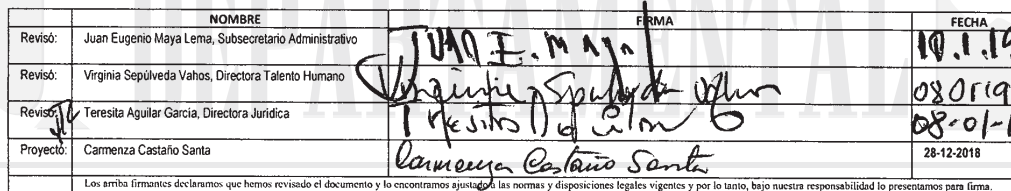 DEPARTAMENTAL
NOMBRE FIRMA FECHA
Revisó: Juan Eugenio Maya Lema, Subsecretario Administrativo JUAN E. MAYA 10.1.19
Revisó: Virginia Sepúlveda Vahos, Directora Talento Humano Virginia Sepulveda Vahos
Revisó: Teresita Aguilar Garcia, Directora Jurídica Teresita Aguilar 08-01-
Proyectó: Carmenza Castaño Santa Carmenza Castaño Santa 28-12-2018
Los arriba firmantes declaramos que hemos revisado el documento y lo encontramos ajustado a las normas y disposiciones legales vigentes y por lo tanto, bajo nuestra responsabilidad lo presentamos para firma.